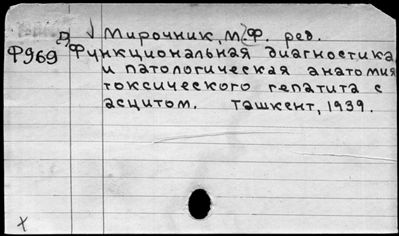 Д √ Мирочник, М.Ф. ред.
Ф969 Функциональная диагностика
и патологическая анатомия
токсического гепатита с
асцитом. Ташкент, 1939.
X